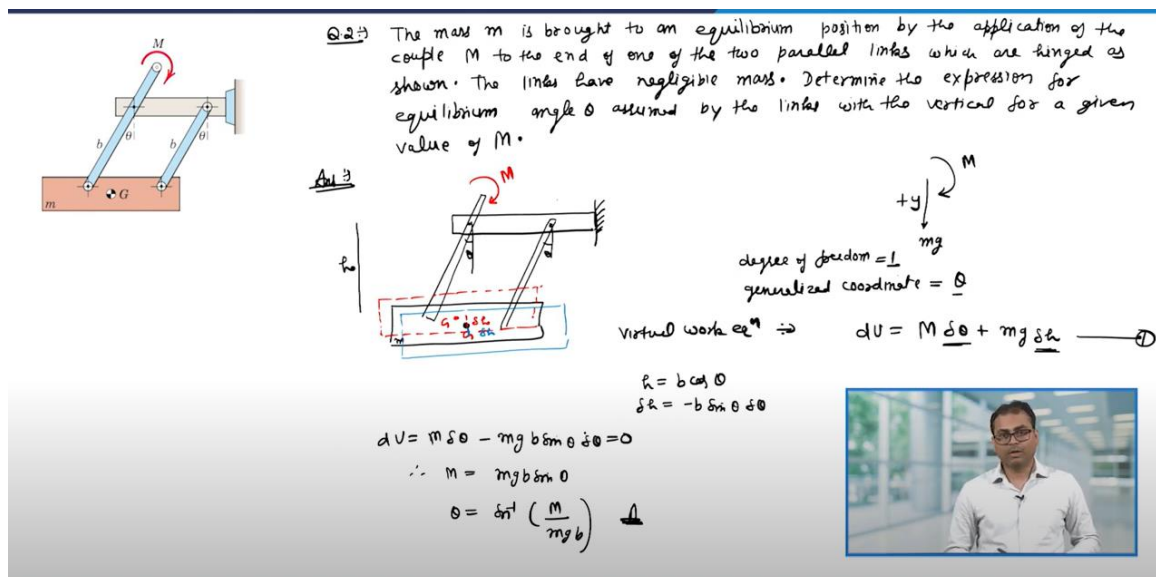 Q.2:→ The mass m is brought to an equilibrium position by the application of the
couple M to the end of one of the two parallel links which are hinged as
shown. The links have negligible mass. Determine the expression for
equilibrium angle θ assumed by the links with the vertical for a given
value of M.
M
θ
θ
b
b
G
m
Ans:→
M
θ
θ
h
G
δh
G
δh
m
M
+y
mg
degree of freedom = 1
generalized coordinate = θ
virtual work eqⁿ ⇒ dU = M δθ + mg δh ——— ①
h = b cos θ
δh = -b sin θ δθ
dU = M δθ - mg b sin θ δθ = 0
∴ M = mg b sin θ
θ = sin⁻¹ (M/mgb)